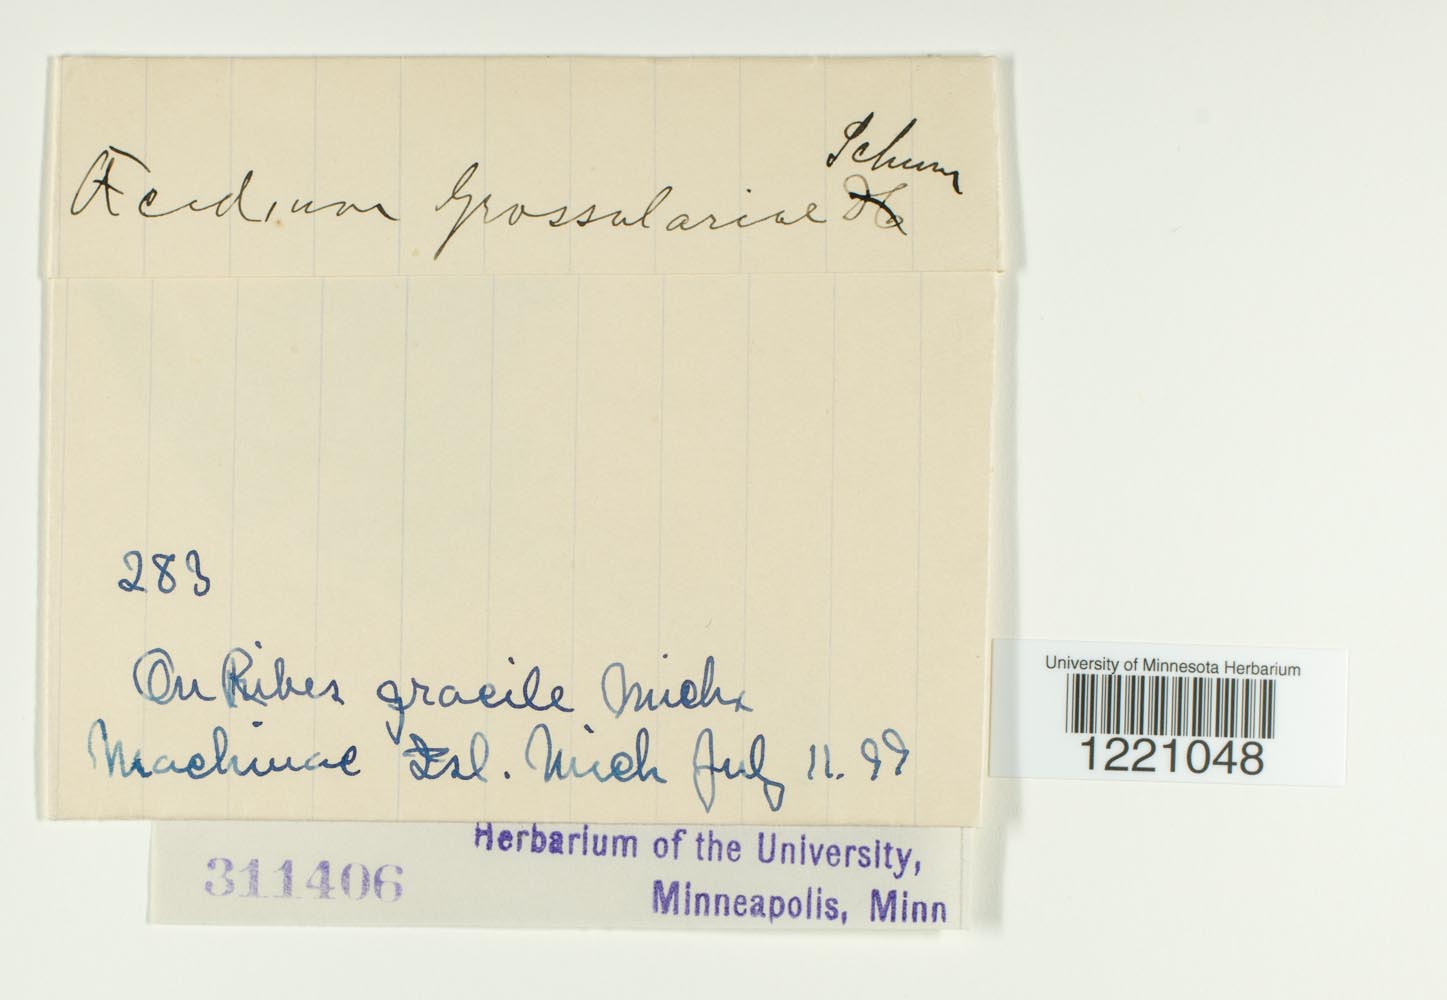 Æcidium Grossulariae Schum
283
On Ribes gracile Michx
Machinac Isl. Mich July 11. 99
University of Minnesota Herbarium
1221048
Herbarium of the University,
311406
Minneapolis, Minn